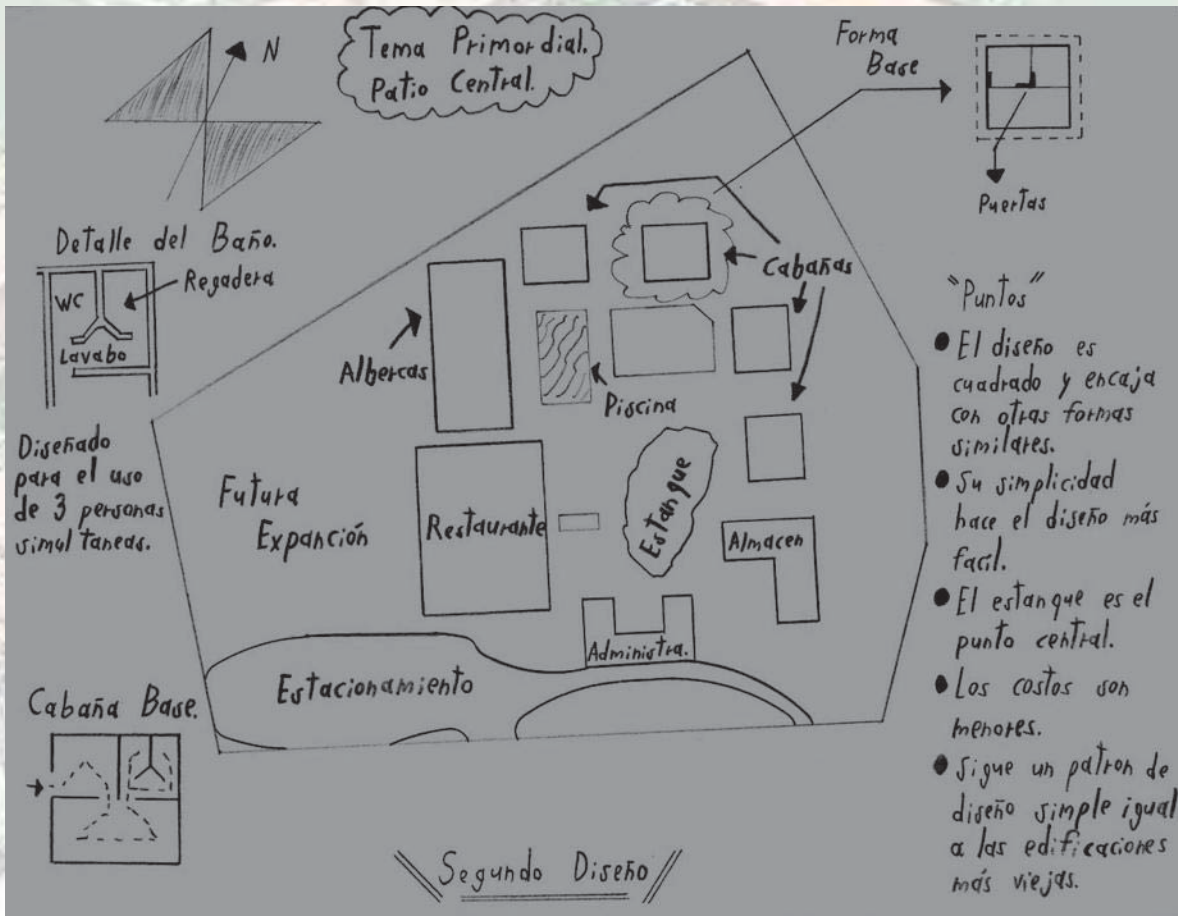 N
Tema Primordial.
Patio Central.
Forma
Base
Puertas
Detalle del Baño.
WC
Regadera
Lavabo
Diseñado
para el uso
de 3 personas
simultaneas.
Cabañas
Albercas
Piscina
Futura
Expanción
Restaurante
Estanque
Almacen
Administra.
Estacionamiento
Cabaña Base.
"Puntos"
● El diseño es
cuadrado y encaja
con otras formas
similares.
● Su simplicidad
hace el diseño más
facíl.
● El estanque es el
punto central.
● Los costos son
menores.
● Sigue un patron de
diseño simple igual
a las edificaciones
más viejas.
Segundo Diseño